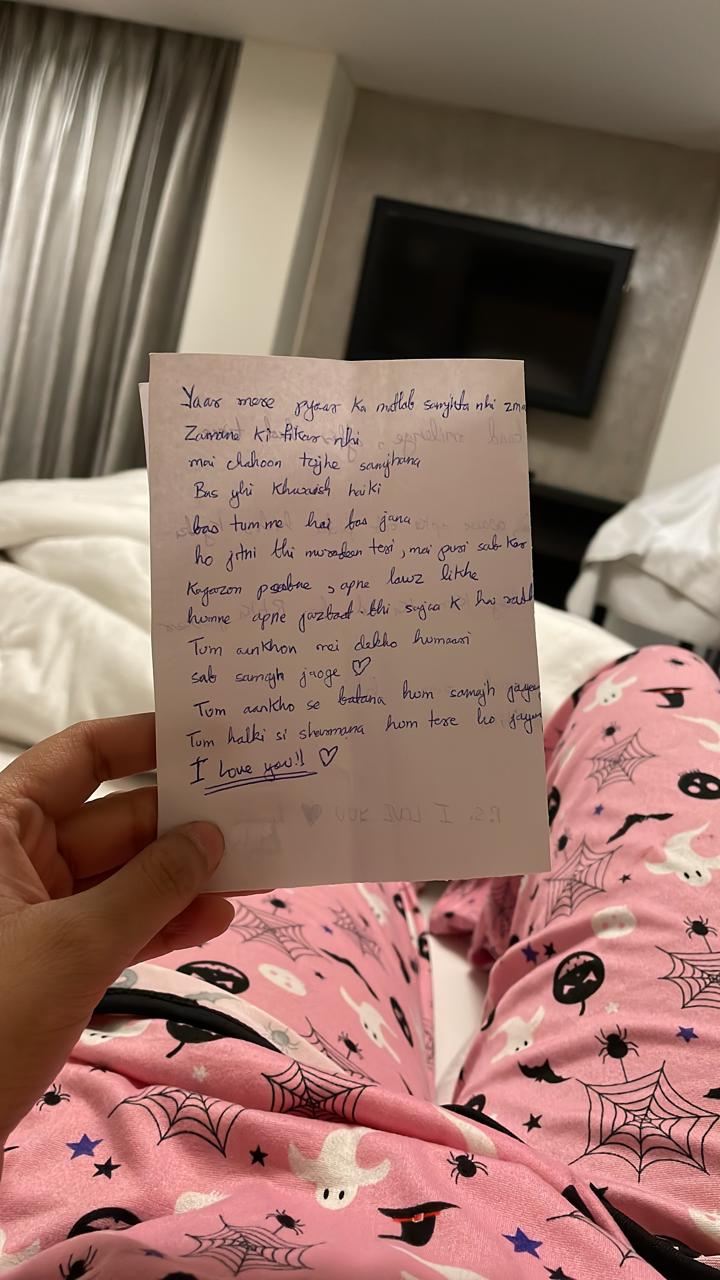 Yaar mere pyaar ka matlab samjhta nhi zma
Zamane ki fikar nhi
mai chahoon tujhe samjhana
Bas yhi khwaish hai ki
bas tum me hai bas jana
ho jitni thi muradein teri, mai puri sab kar
Kagazon pe, apne lawz likhe
humne apne jazbaat bhi sajaa k
Tum aankhon mei dekho humaari
sab samajh jaoge ♡
Tum aankho se batana hum samajh jayen
Tum halki si sharmana hum tere ho jayen
I Love you!! ♡
P.S. I LOVE YOU ♥